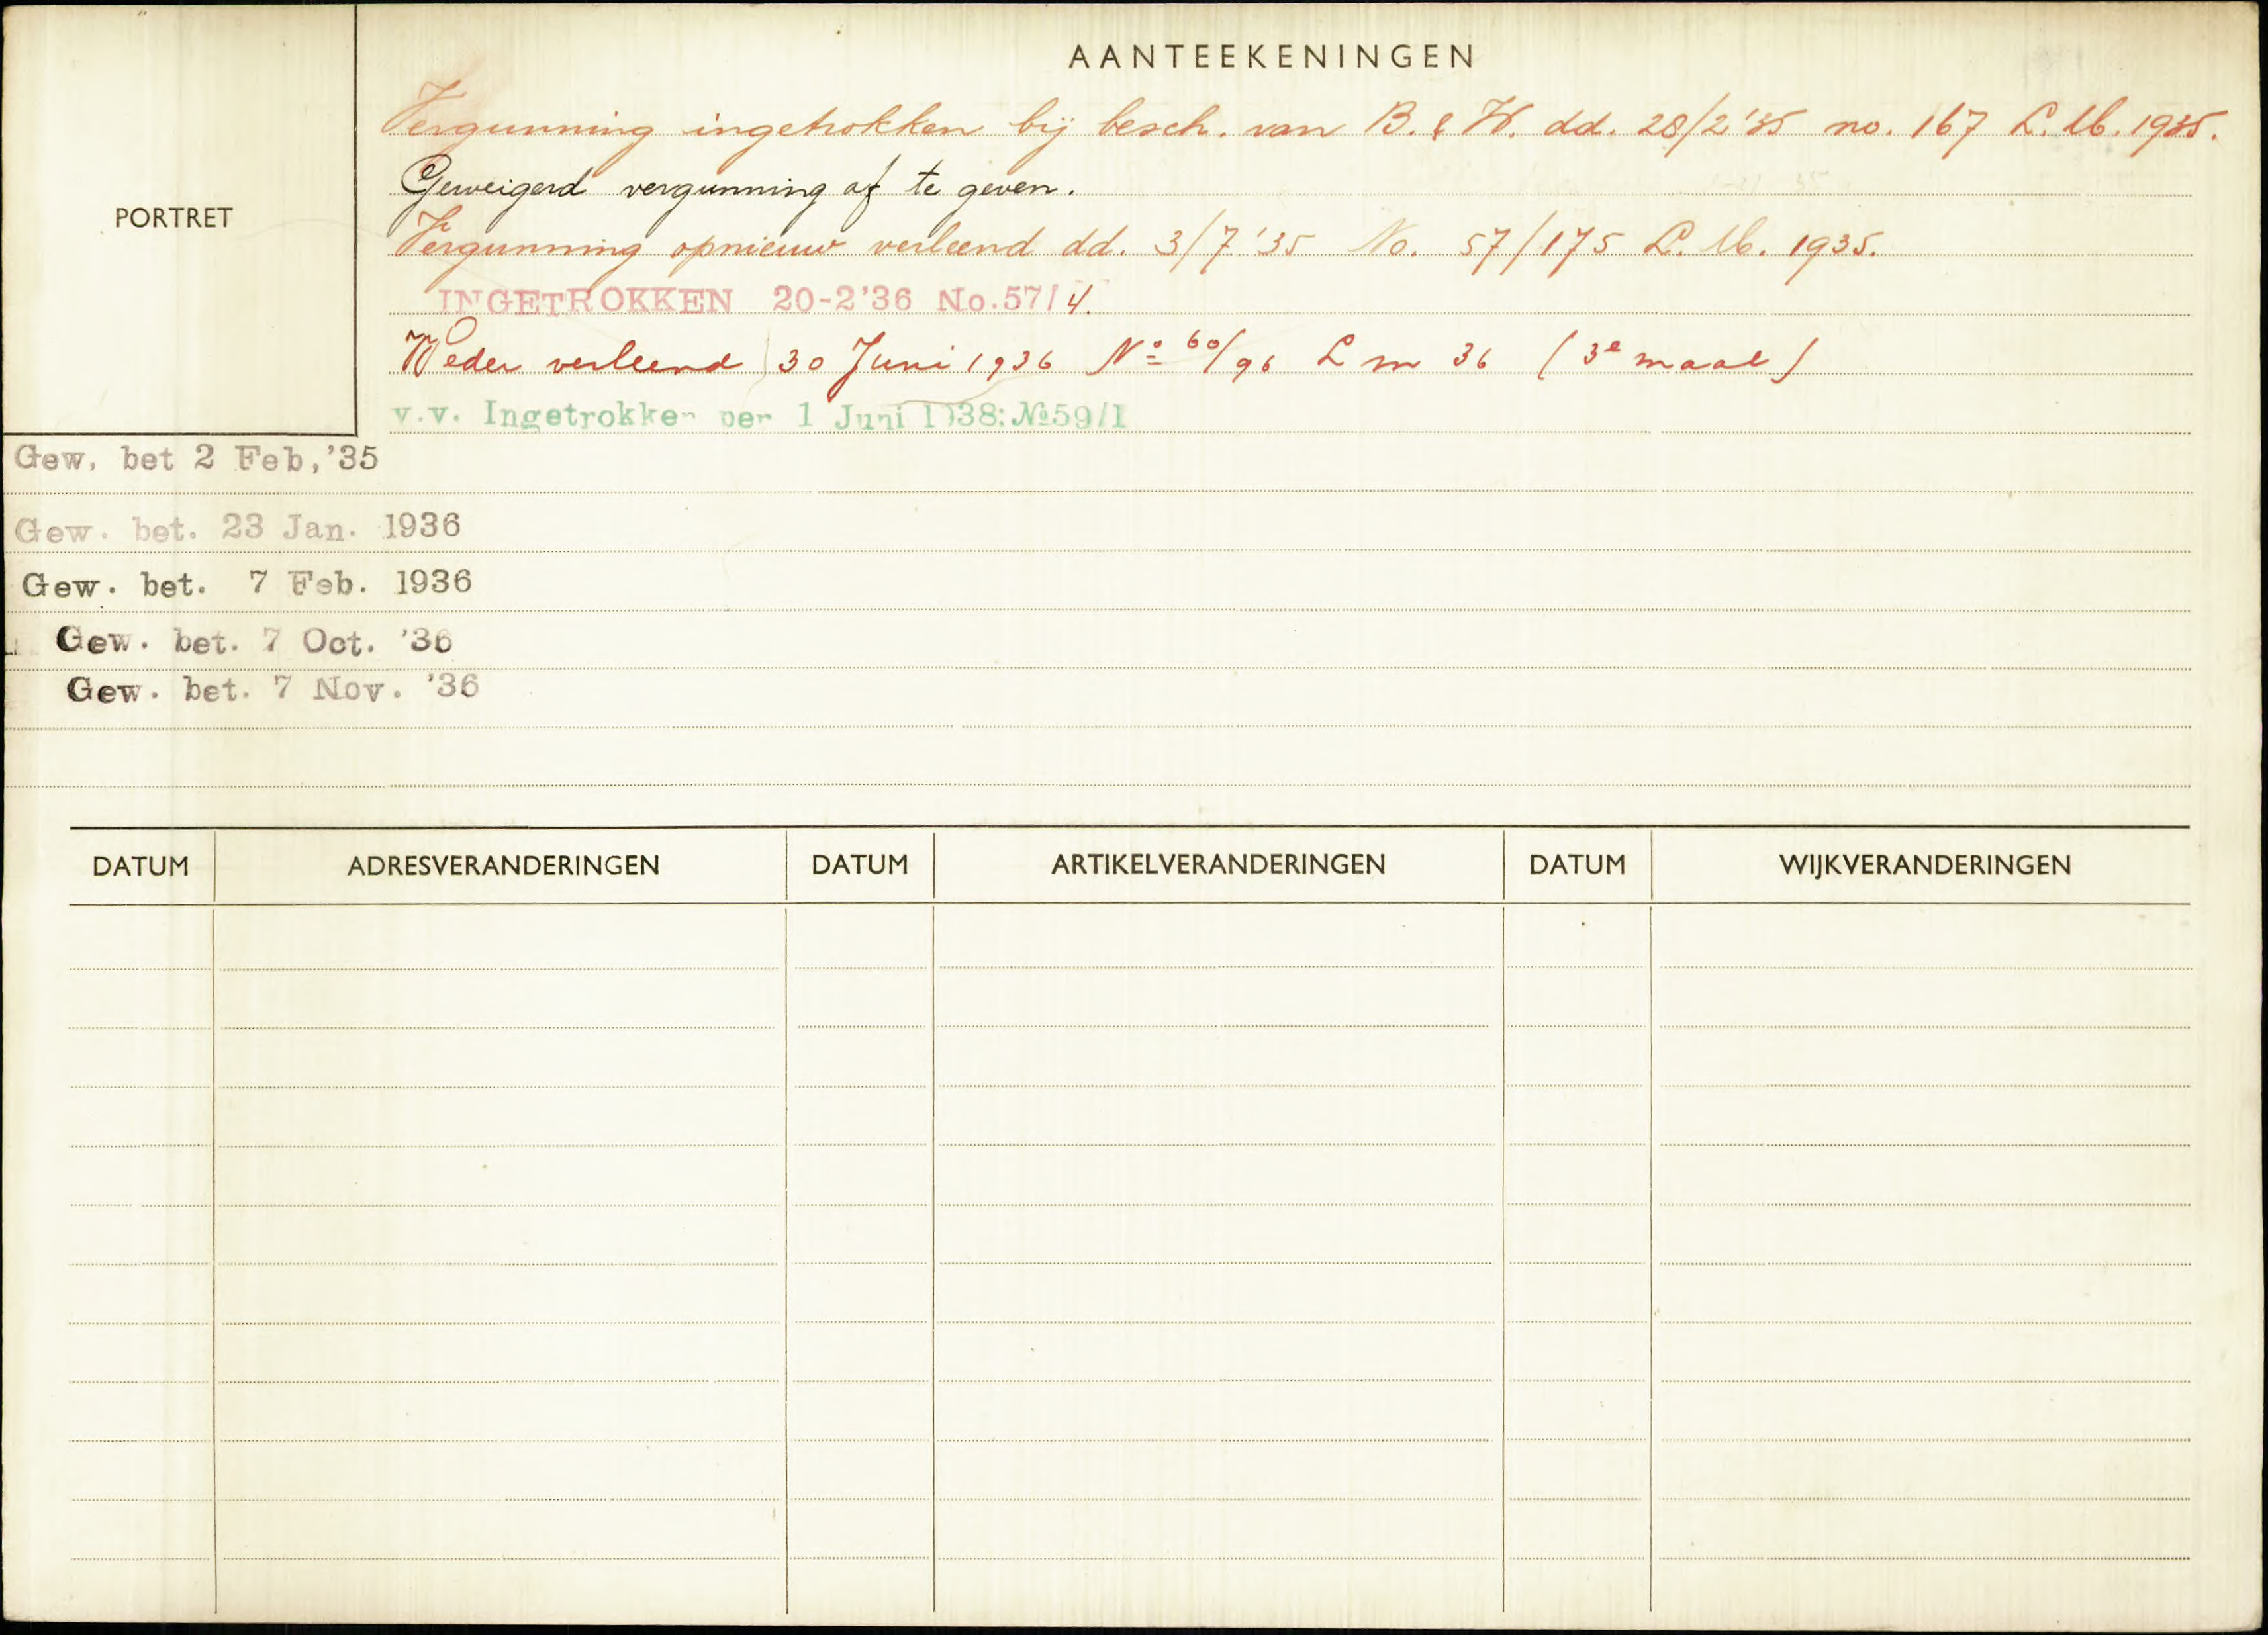 AANTEEKENINGEN
Vergunning ingetrokken bij besch. van B. & W. dd. 28/2 '35 no. 167 L. M. 1935.
Geweigerd vergunning af te geven.
PORTRET
Vergunning opnieuw verleend dd. 3/7 '35 No. 57/175 L. M. 1935.
INGETROKKEN 20-2'36 No.57/4.
Weder verleend 30 Juni 1936 No 60/96 L m 36 (3e maal)
v.v. Ingetrokken per 1 Juni 1938: No 59/1
Gew. bet 2 Feb,'35
Gew. bet. 23 Jan. 1936
Gew. bet. 7 Feb. 1936
Gew. bet. 7 Oct. '36
Gew. bet. 7 Nov. '36
DATUM ADRESVERANDERINGEN DATUM ARTIKELVERANDERINGEN DATUM WIJKVERANDERINGEN